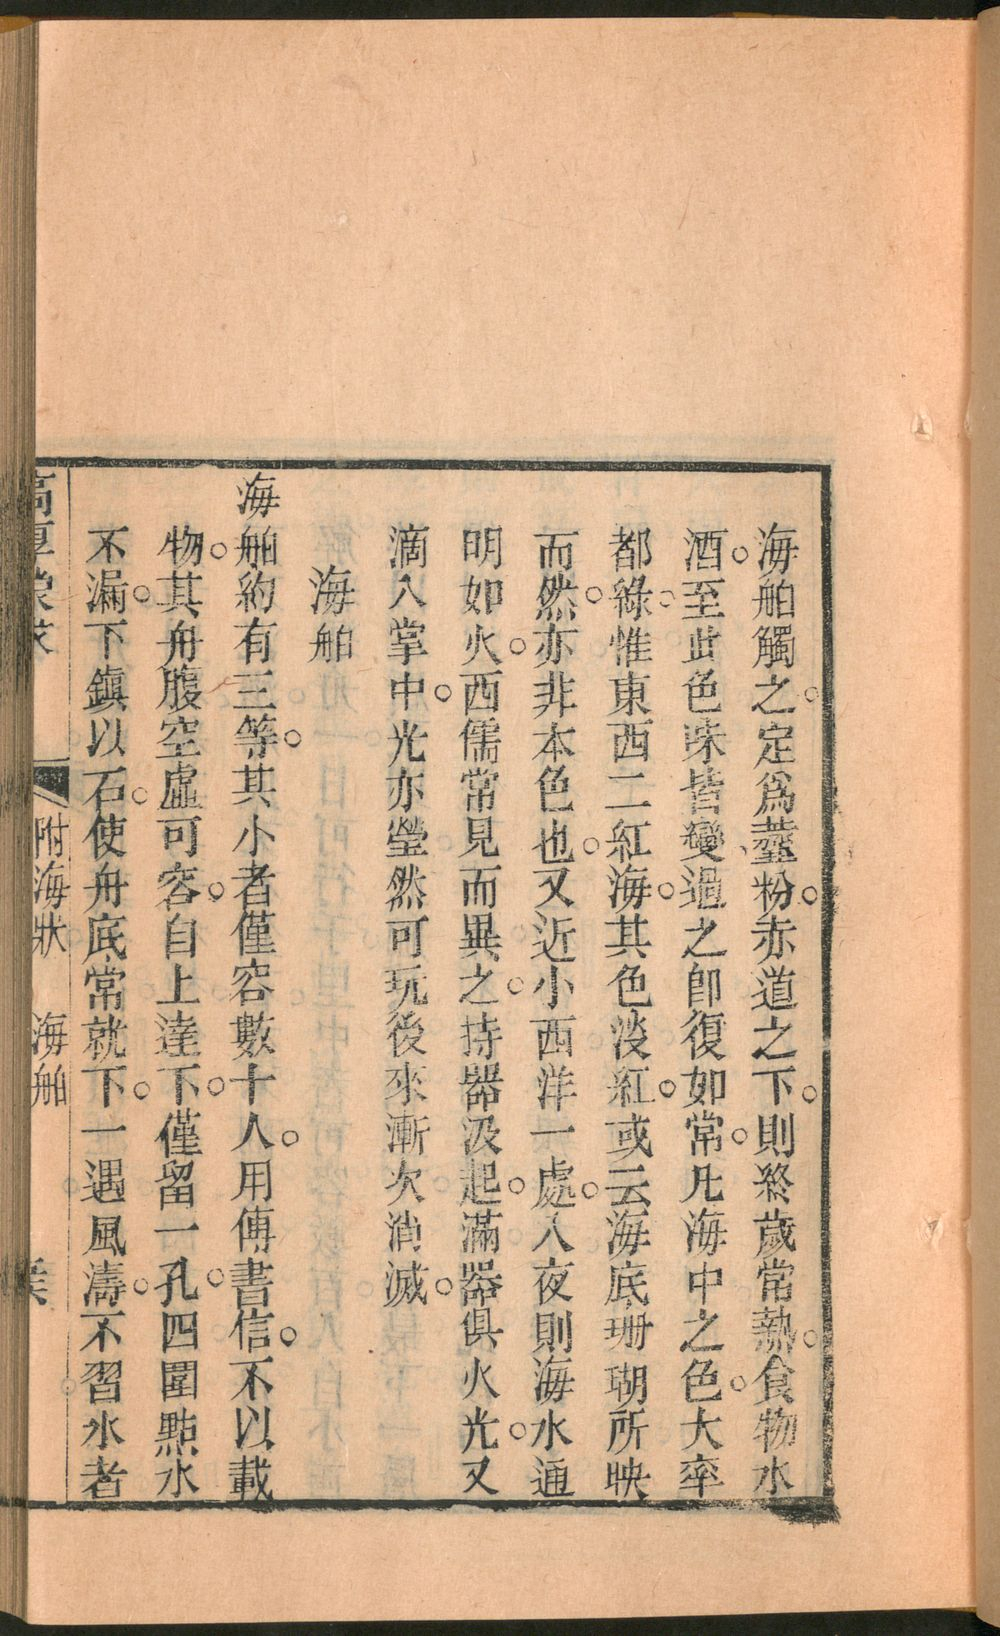 海舶觸之。定爲虀粉。赤道之下。則終歲常熱。食物水
酒。至此色味皆變。過之卽復如常。凡海中之色。大率
都綠。惟東西二紅海。其色淡紅。或云海底珊瑚所映
而然。亦非本色也。又近小西洋一處。入夜則海水通
明如火。西儒常見而異之。持器汲起。滿器俱火光。又
滴入掌中。光亦瑩然可玩。後來漸次消滅。
海舶
海舶約有三等。其小者僅容數十人。用傳書信。不以載
物。其舟腹空虛可容。自上達下。僅留一孔。四圍點水
不漏。下鎮以石。使舟底常就下。一遇風濤。不習水者
高厚蒙求
附海狀 海舶